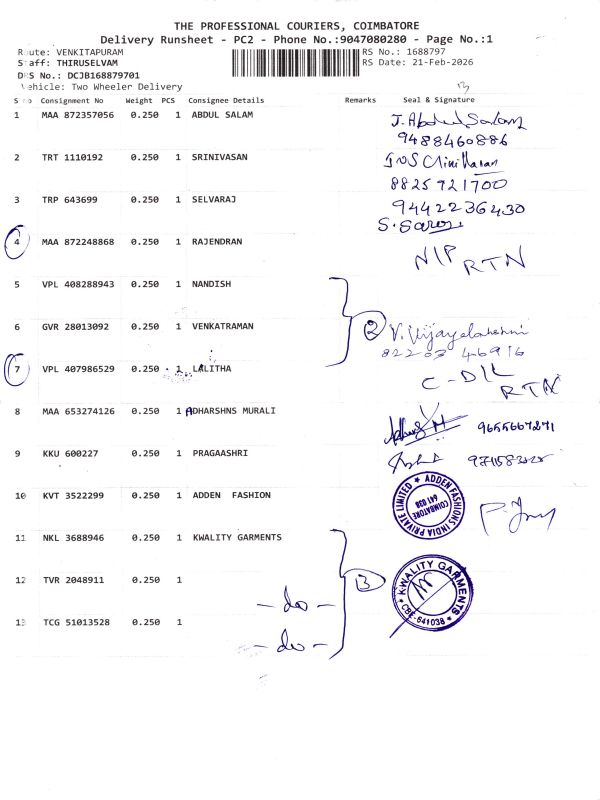 THE PROFESSIONAL COURIERS, COIMBATORE
Delivery Runsheet - PC2 - Phone No.:9047080280 - Page No.:1
Route: VENKITAPURAM RS No.: 1688797
Staff: THIRUSELVAM RS Date: 21-Feb-2026
DRS No.: DCJB168879701
Vehicle: Two Wheeler Delivery 13
S no Consignment No Weight PCS Consignee Details Remarks Seal & Signature
1 MAA 872357056 0.250 1 ABDUL SALAM J. Abdul Salam
9488460886
2 TRT 1110192 0.250 1 SRINIVASAN
8825921700
3 TRP 643699 0.250 1 SELVARAJ 9442236430
S. Saroj
4 MAA 872248868 0.250 1 RAJENDRAN N/P RTN
5 VPL 408288943 0.250 1 NANDISH
6 GVR 28013092 0.250 1 VENKATRAMAN 2 V. Vijayalakshmi
82203 46916
7 VPL 407986529 0.250 1 LALITHA C-D/L RTN
8 MAA 653274126 0.250 1 ADHARSHNS MURALI 9655667271
9 KKU 600227 0.250 1 PRAGAASHRI
10 KVT 3522299 0.250 1 ADDEN FASHION ADDEN FASHIONS INDIA PRIVATE LIMITED COIMBATORE 641 038
11 NKL 3688946 0.250 1 KWALITY GARMENTS
12 TVR 2048911 0.250 1 - do - 3 KWALITY GARMENTS CBE-641038
13 TCG 51013528 0.250 1 - do -